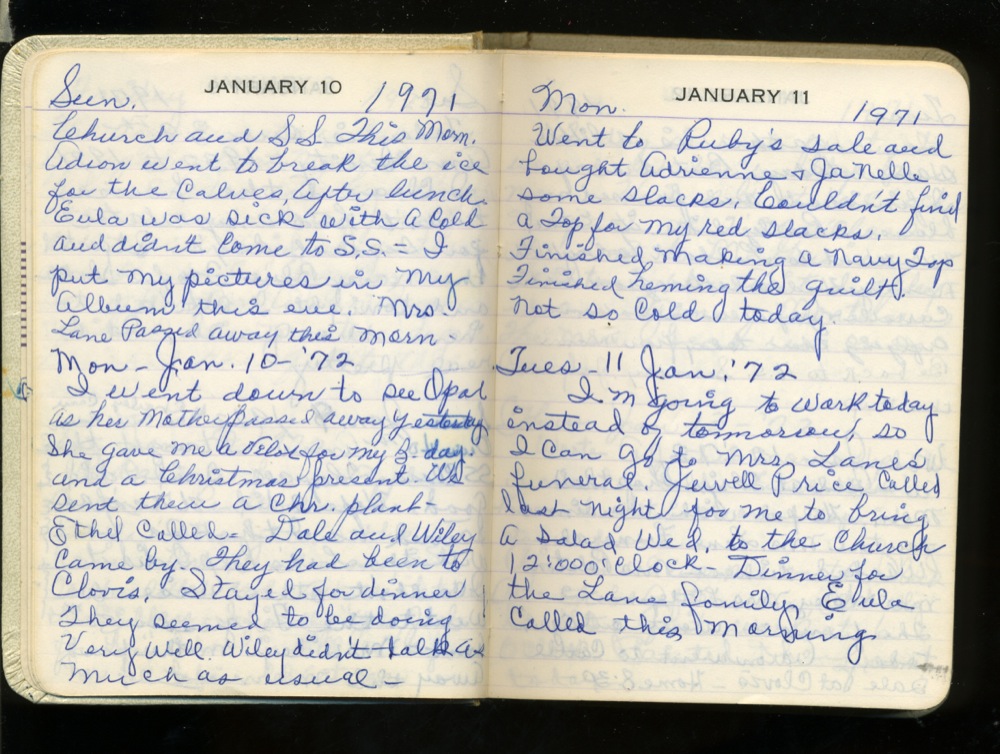 JANUARY 10
Sun. 1971
Church and S.S. This Morn.
Adion went to break the ice
for the Calves, after lunch.
Eula was sick with a Cold
and didn't Come to S.S. = I
put my pictures in my
Album this eve. Mrs.
Lane Passed away this Morn -
Mon - Jan. 10 - '72
I went down to see Opal
as her Mother passed away yesterday
She gave me a for my B day.
and a Christmas present. We
sent them a Chr. plant
Ethel Called = Dale and Wiley
Came by. They had been to
Clovis. Stayed for dinner
They seemed to be doing
Very Well. Wiley didn't talk as
much as usual -
JANUARY 11
Mon. 1971
Went to Ruby's sale and
bought Adrienne & JaNelle
some slacks. Couldn't find
a Top for my red slacks.
Finished making a Navy Top
Finished heming the quilt.
Not so Cold today.
Tues - 11 Jan. '72
I'm going to work today
instead of tomorrow, so
I Can go to Mrs. Lane's
funeral. Jewell Price Called
last night for me to bring
a salad Wed. to the Church
12:00 O'clock - Dinner for
the Lane family. Eula
Called this morning